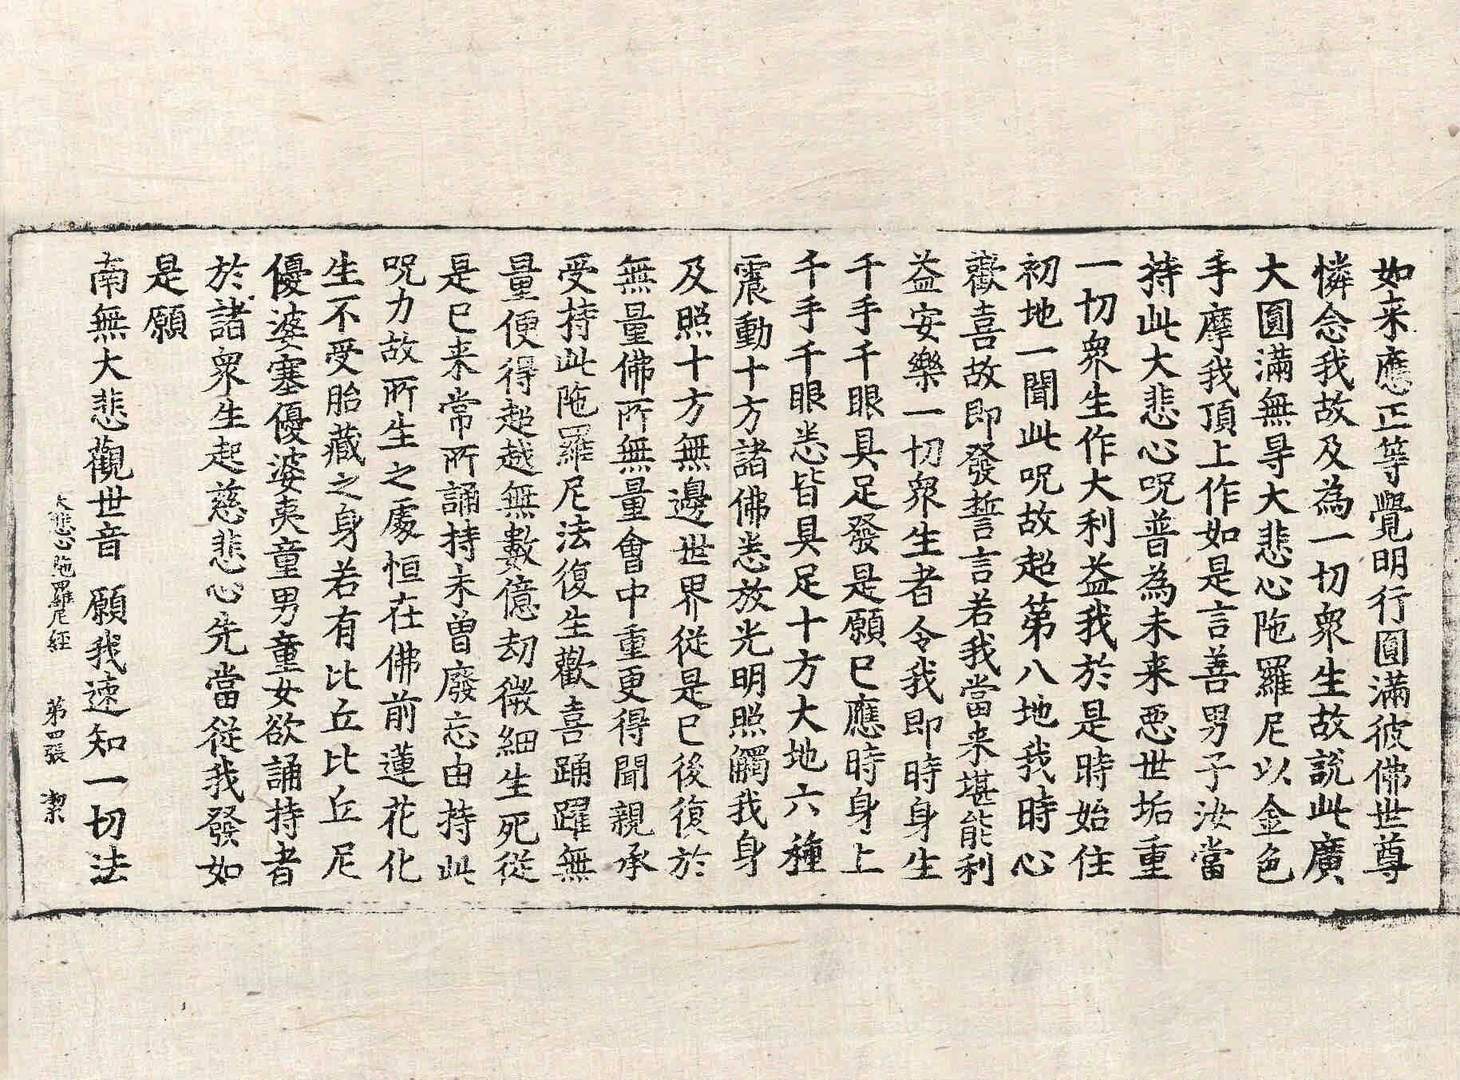 如来應正等覺明行圓滿彼佛世尊
憐念我故及為一切衆生故說此廣
大圓滿無㝵大悲心陁羅尼以金色
手摩我頂上作如是言善男子汝當
持此大悲心呪普為未来惡世垢重
一切衆生作大利益我於是時始住
初地一聞此呪故超第八地我時心
歡喜故即發誓言若我當来堪能利
益安樂一切衆生者令我即時身生
千手千眼具足發是願已應時身上
千手千眼悉皆具足十方大地六種
震動十方諸佛悉放光明照觸我身
及照十方無邊世界從是已後復於
無量佛所無量會中重更得聞親承
受持此陁羅尼法復生歡喜踊躍無
量便得超越無數億劫微細生死從
是已来常所誦持未曽廢忘由持此
呪力故所生之處恒在佛前蓮花化
生不受胎藏之身若有比丘比丘尼
優婆塞優婆夷童男童女欲誦持者
於諸衆生起慈悲心先當從我發如
是願
南無大悲觀世音 願我速知一切法
大悲心陁羅尼經 第四張 潔